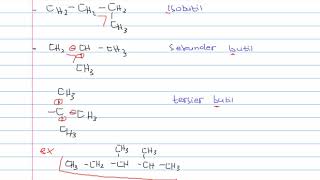 - CH₂ - CH₂ - CH₂ Isobutil
CH₃
- CH₂ CH - CH₃ Sekunder butil
CH₃
CH₃
- C CH₃ tersier butil
CH₃
ex CH₃ CH₃
CH₃ - CH₂ - CH - CH - CH₃